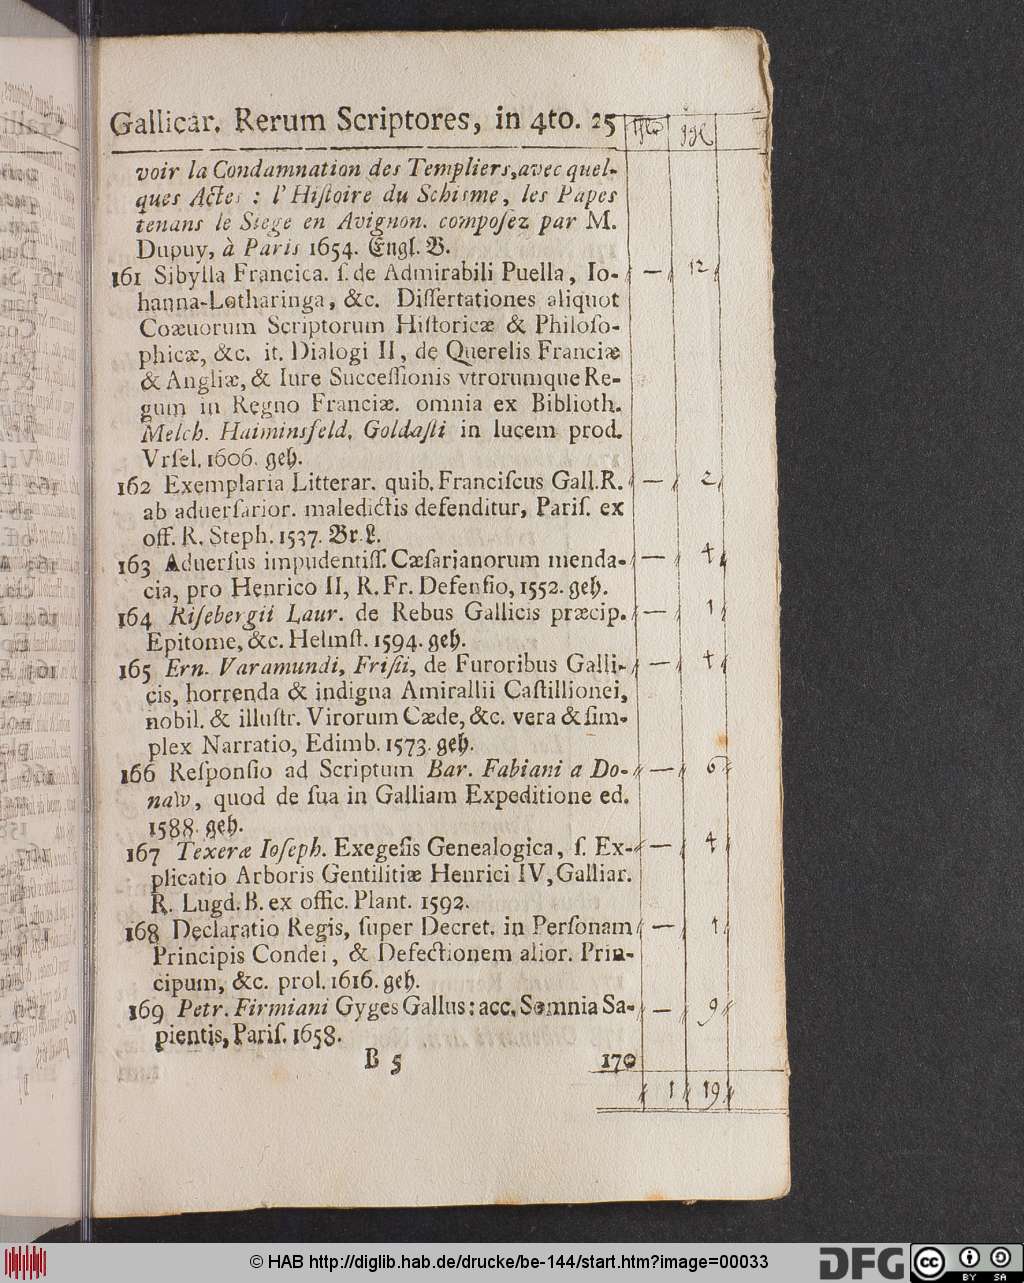 Gallicar. Rerum Scriptores, in 4to. 25
voir la Condamnation des Templiers, avec quel-
ques Actes : l' Hiſtoire du Schisme, les Papes
tenans le Siege en Avignon. compoſez par M.
Dupuy, à Paris 1654. Engl. B.
161 Sibylla Francica. ſ. de Admirabili Puella, Io- — 12
hanna-Lotharinga, &c. Diſſertationes aliquot
Coæuorum Scriptorum Hiſtoricæ & Philoſo-
phicæ, &c. it. Dialogi II, de Querelis Franciæ
& Angliæ, & Iure Succeſſionis vtrorumque Re-
gum in Regno Franciæ. omnia ex Biblioth.
Melch. Haiminsfeld. Goldaſti in lucem prod.
Vrſel. 1606. geh.
162 Exemplaria Litterar. quib. Franciſcus Gall. R. — 2
ab aduerſarior. maledictis defenditur, Pariſ. ex
off. R. Steph. 1537. Br. L.
163 Aduerſus impudentiſſ. Cæſarianorum menda- — 4
cia, pro Henrico II, R. Fr. Defenſio, 1552. geh.
164 Riſebergii Laur. de Rebus Gallicis præcip. — 1
Epitome, &c. Helmſt. 1594. geh.
165 Ern. Varamundi, Friſii, de Furoribus Galli- — 4
cis, horrenda & indigna Amirallii Caſtillionei,
nobil. & illuſtr. Virorum Cæde, &c. vera & ſim-
plex Narratio, Edimb. 1573. geh.
166 Reſponſio ad Scriptum Bar. Fabiani a Do- — 6
naw, quod de ſua in Galliam Expeditione ed.
1588. geh.
167 Texeræ Ioſeph. Exegeſis Genealogica, ſ. Ex- — 4
plicatio Arboris Gentilitiæ Henrici IV, Galliar.
R. Lugd. B. ex offic. Plant. 1592.
168 Declaratio Regis, ſuper Decret. in Perſonam — 1
Principis Condei, & Defectionem alior. Prin-
cipum, &c. prol. 1616. geh.
169 Petr. Firmiani Gyges Gallus: acc. Somnia Sa- — 9
pientis, Pariſ. 1658.
B 5 170
1 19
© HAB http://diglib.hab.de/drucke/be-144/start.htm?image=00033
DFG cc BY SA